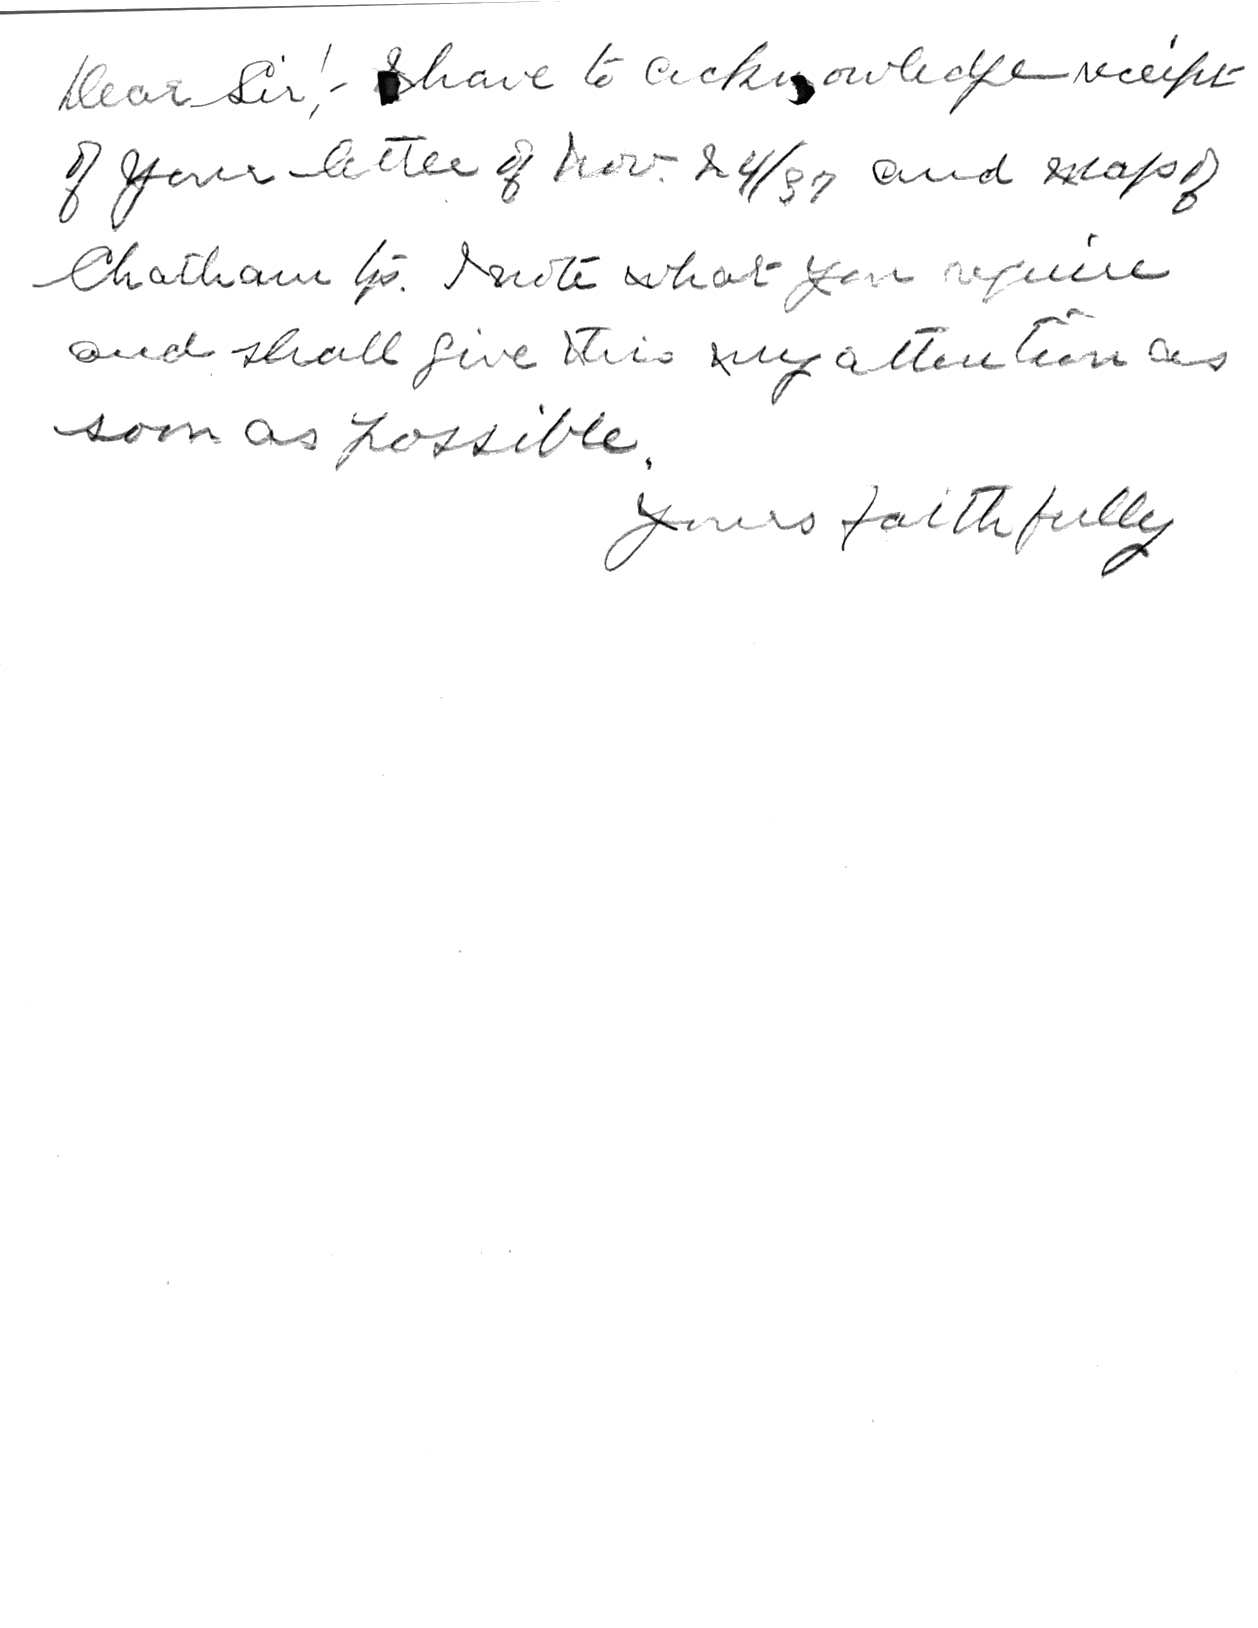 Dear Sir!,- I have to acknowledge receipt
of your letter of Nov. 24/37 and map of
Chatham tp. I note what you require
and shall give this my attention as
soon as possible.
Yours faithfully